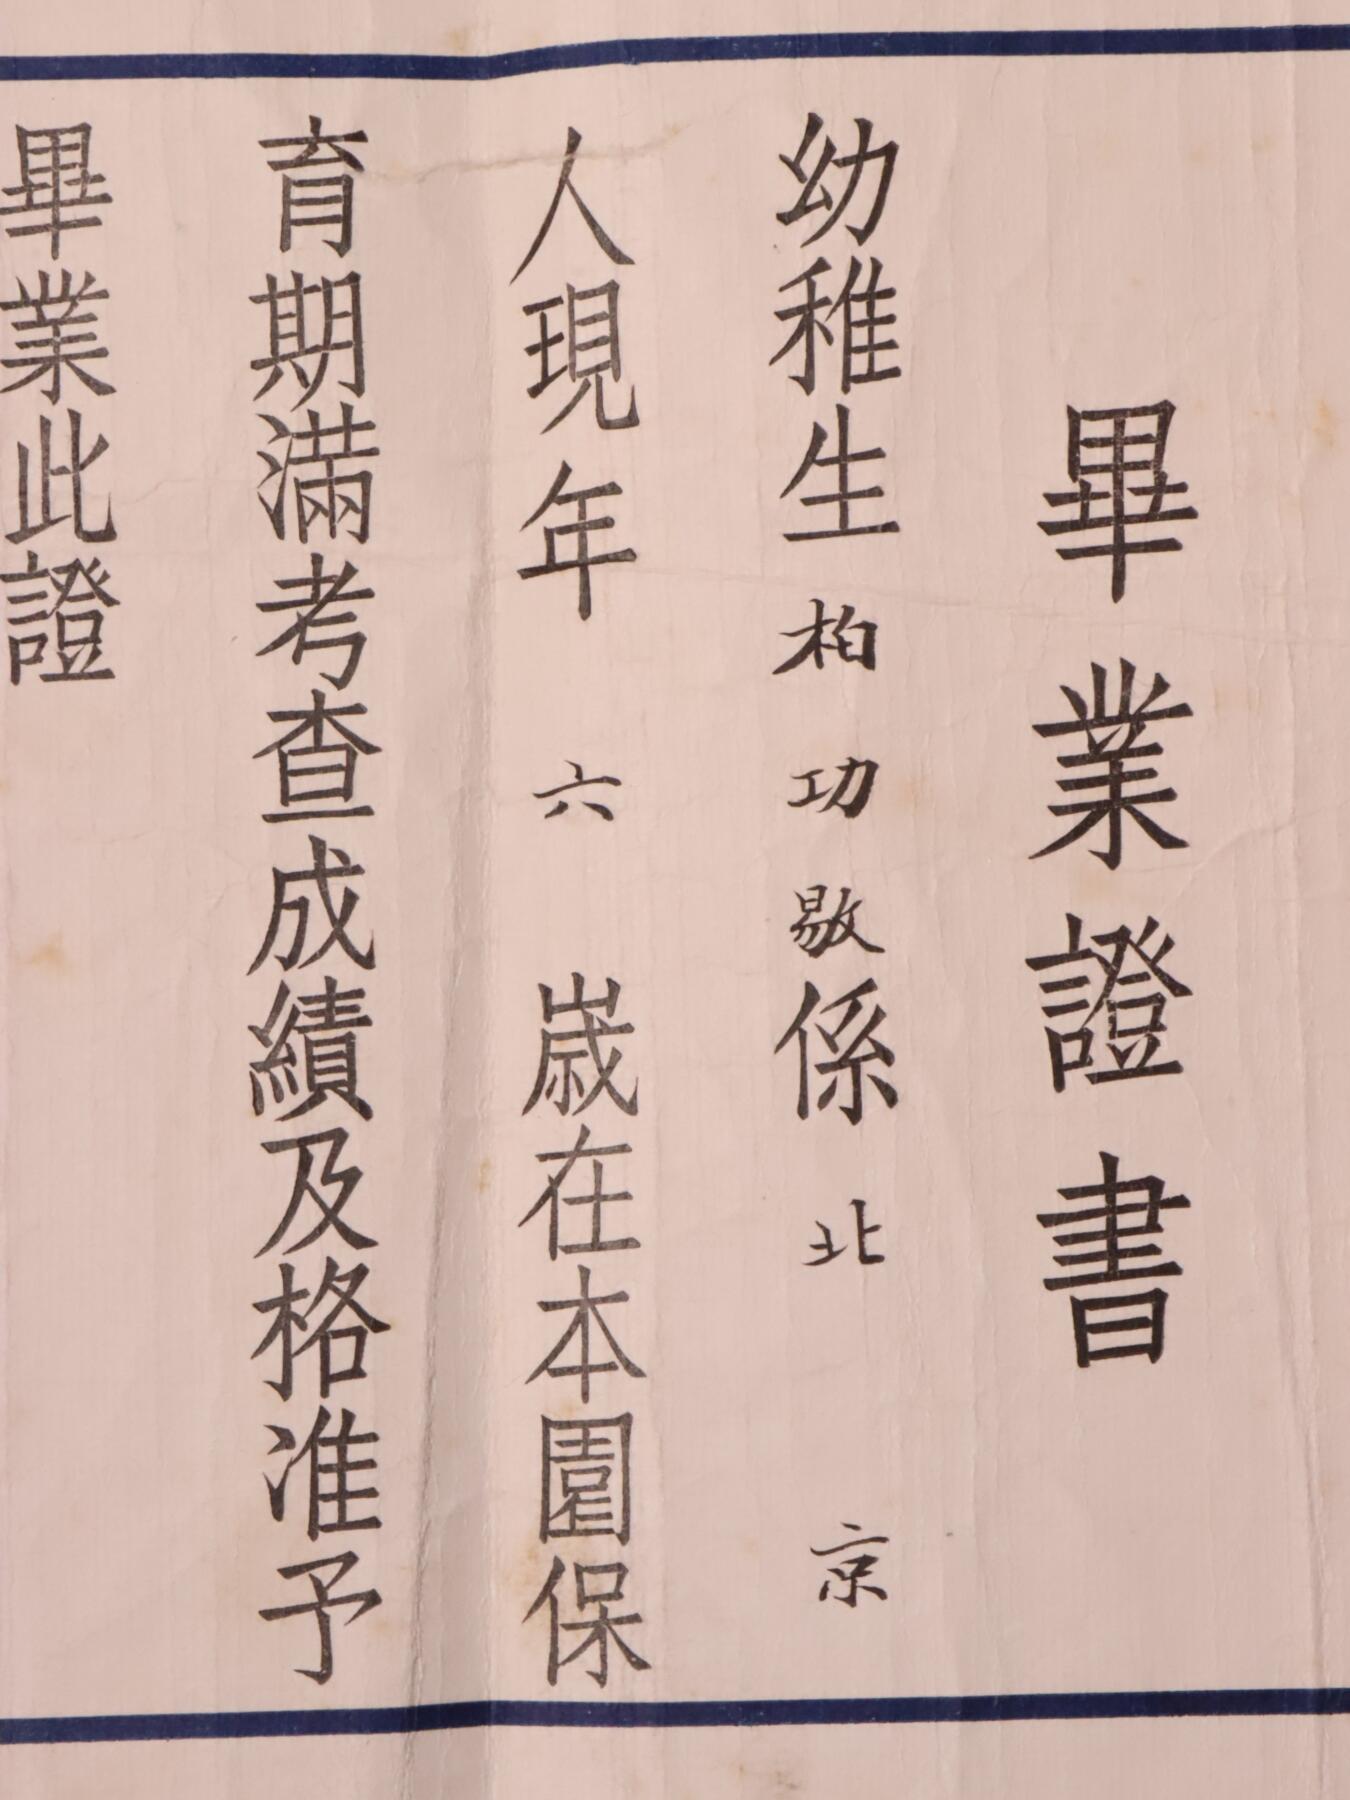 畢業證書
幼稚生柏功敭係北京
人現年六歲在本園保
育期滿考查成績及格准予
畢業此證